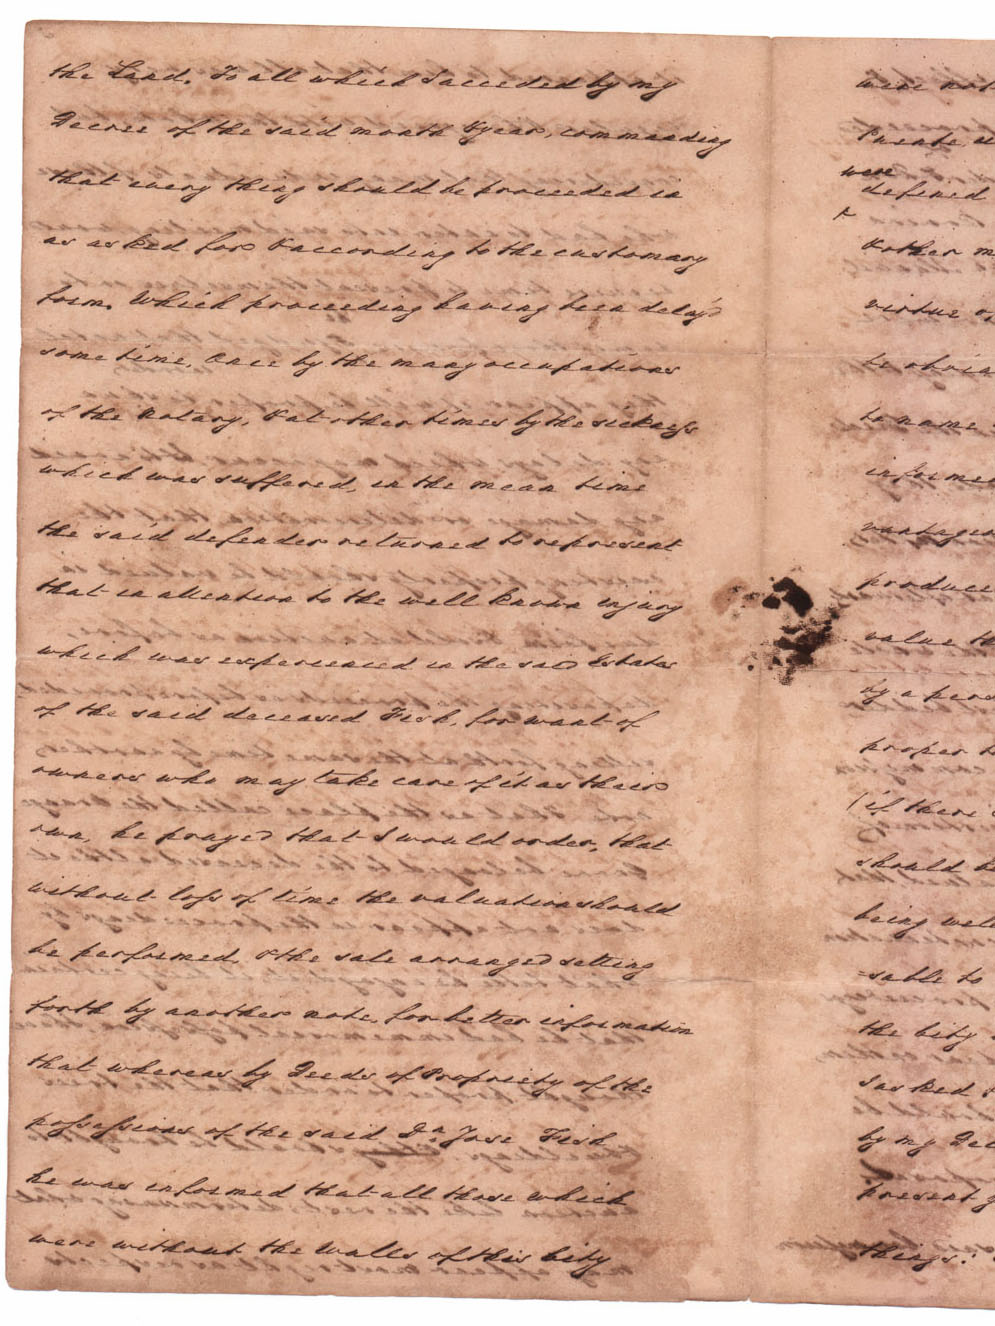 the Land. To all which I acceded by my
Decree of the said month & year, commanding
that every thing should be proceeded in
as asked for & according to the customary
form. Which proceeding having been delay'd
some time, once by the many occupations
of the Notary, & at other times by the sickness
which was suffered, in the mean time
the said defender returned to represent
that in attention to the well known injury
which was experienced in the said Estates
of the said deceased Fish, for want of
owners who may take care of it as their
own, he prayed that I would order, that
without loss of time the valuation should
be performed, & the sale arranged setting
forth by another note, for better information
that whereas by Deeds of Propriety of the
possessions of the said Dn. Jose Fish
he was informed that all those which
were without the walls of this City
were not
Private
were
defined
& other
virtue
to
to name
informed
produce
value
by a
proper
(if there
should
being well
=sable to
the City
& asked
by my
present
things: